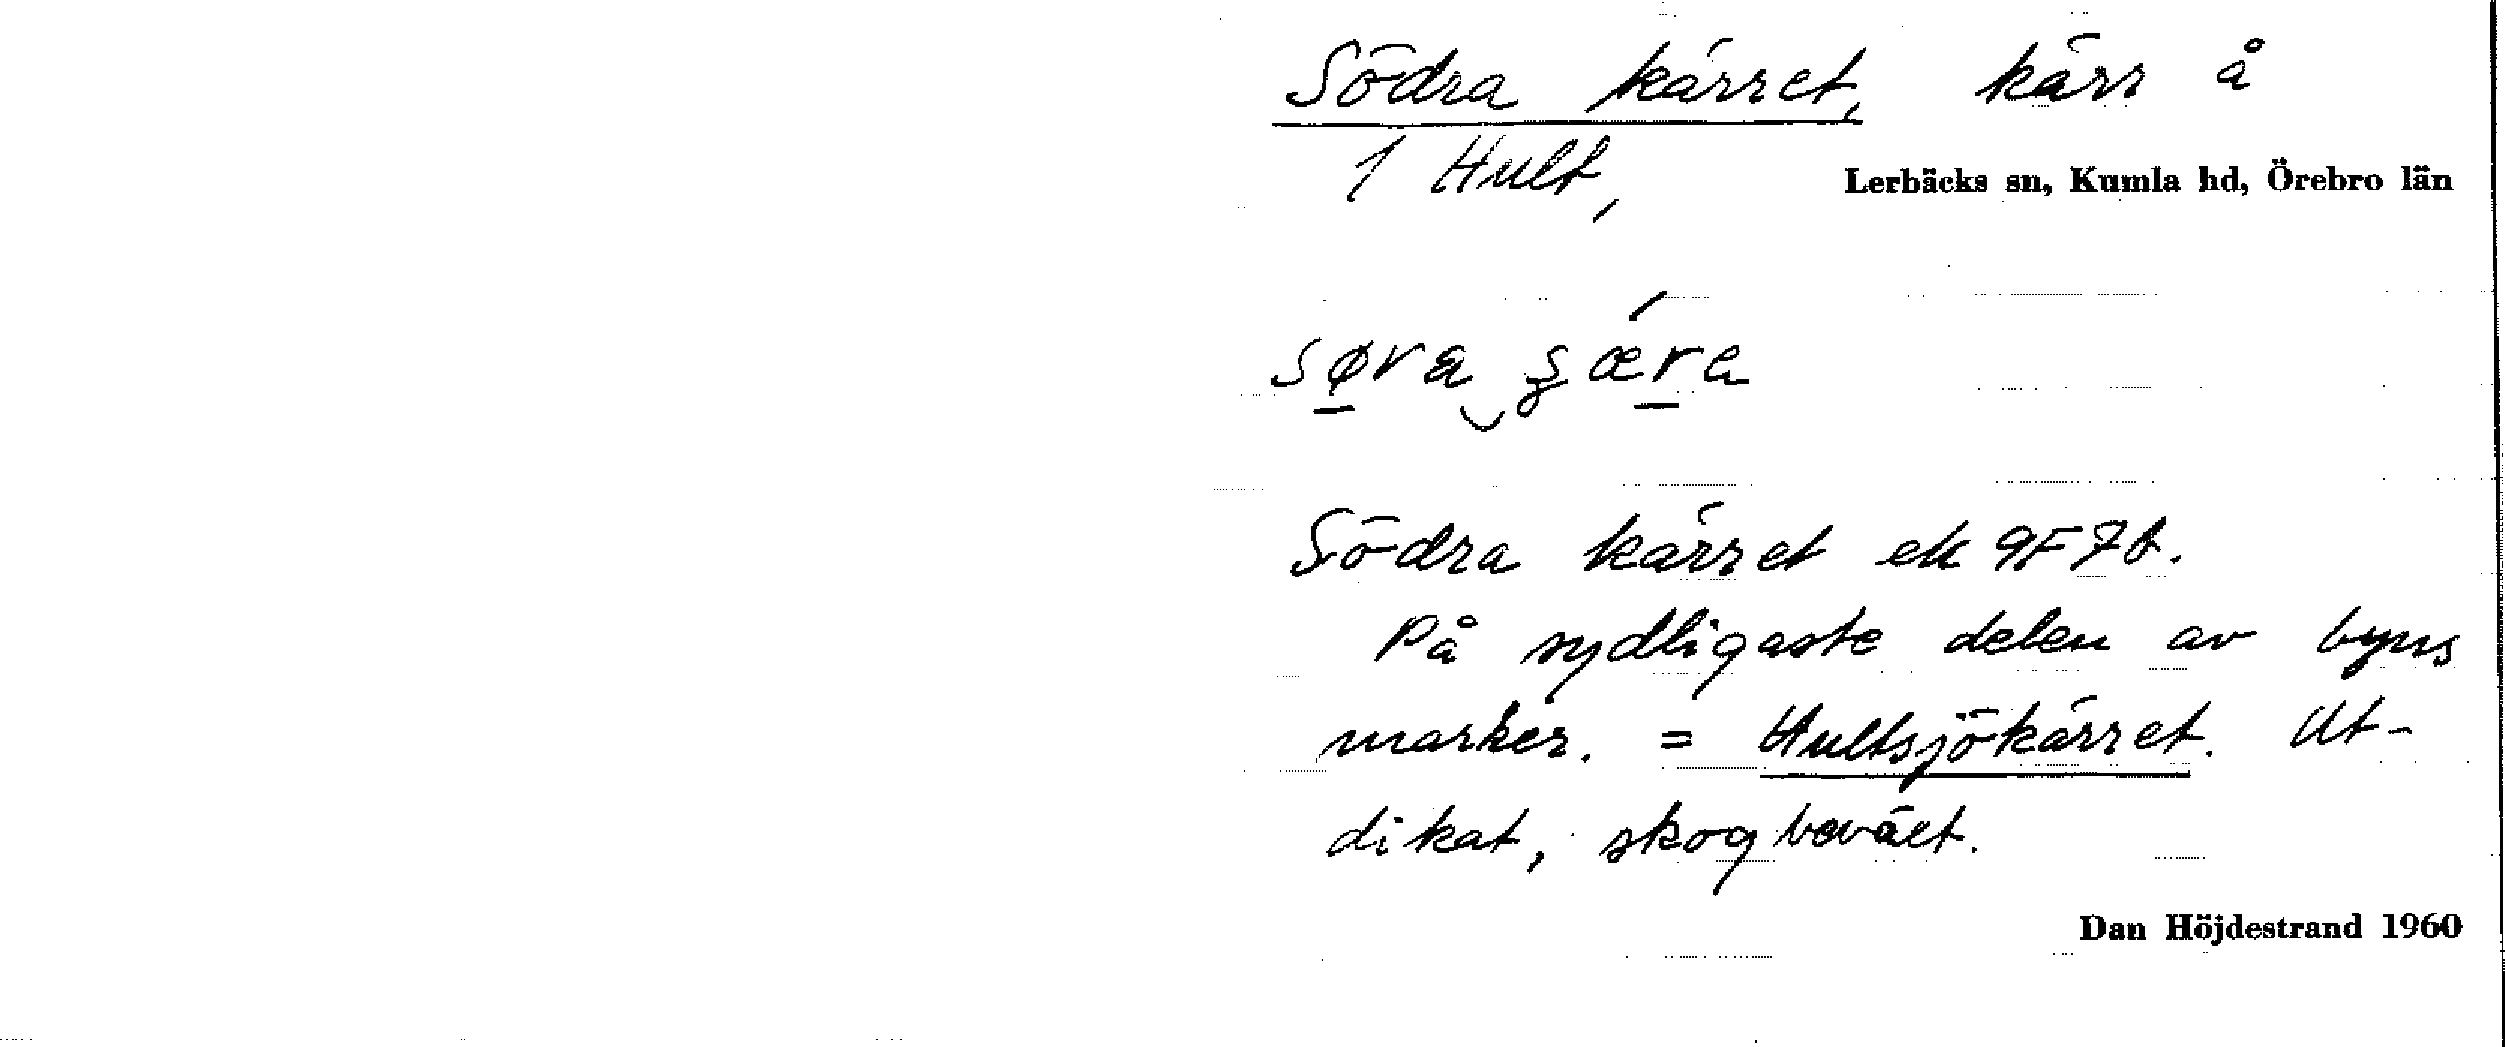 Södra kärret, kärr å
1 Hult,
Lerbäcks sn, Kumla hd, Örebro län
Södra kärret ek 9F7f.
På sydligaste delen av byns
marker. = Hultsjökärret. Ut-
dikat, skogbevält.
Dan Höjdestrand 1960